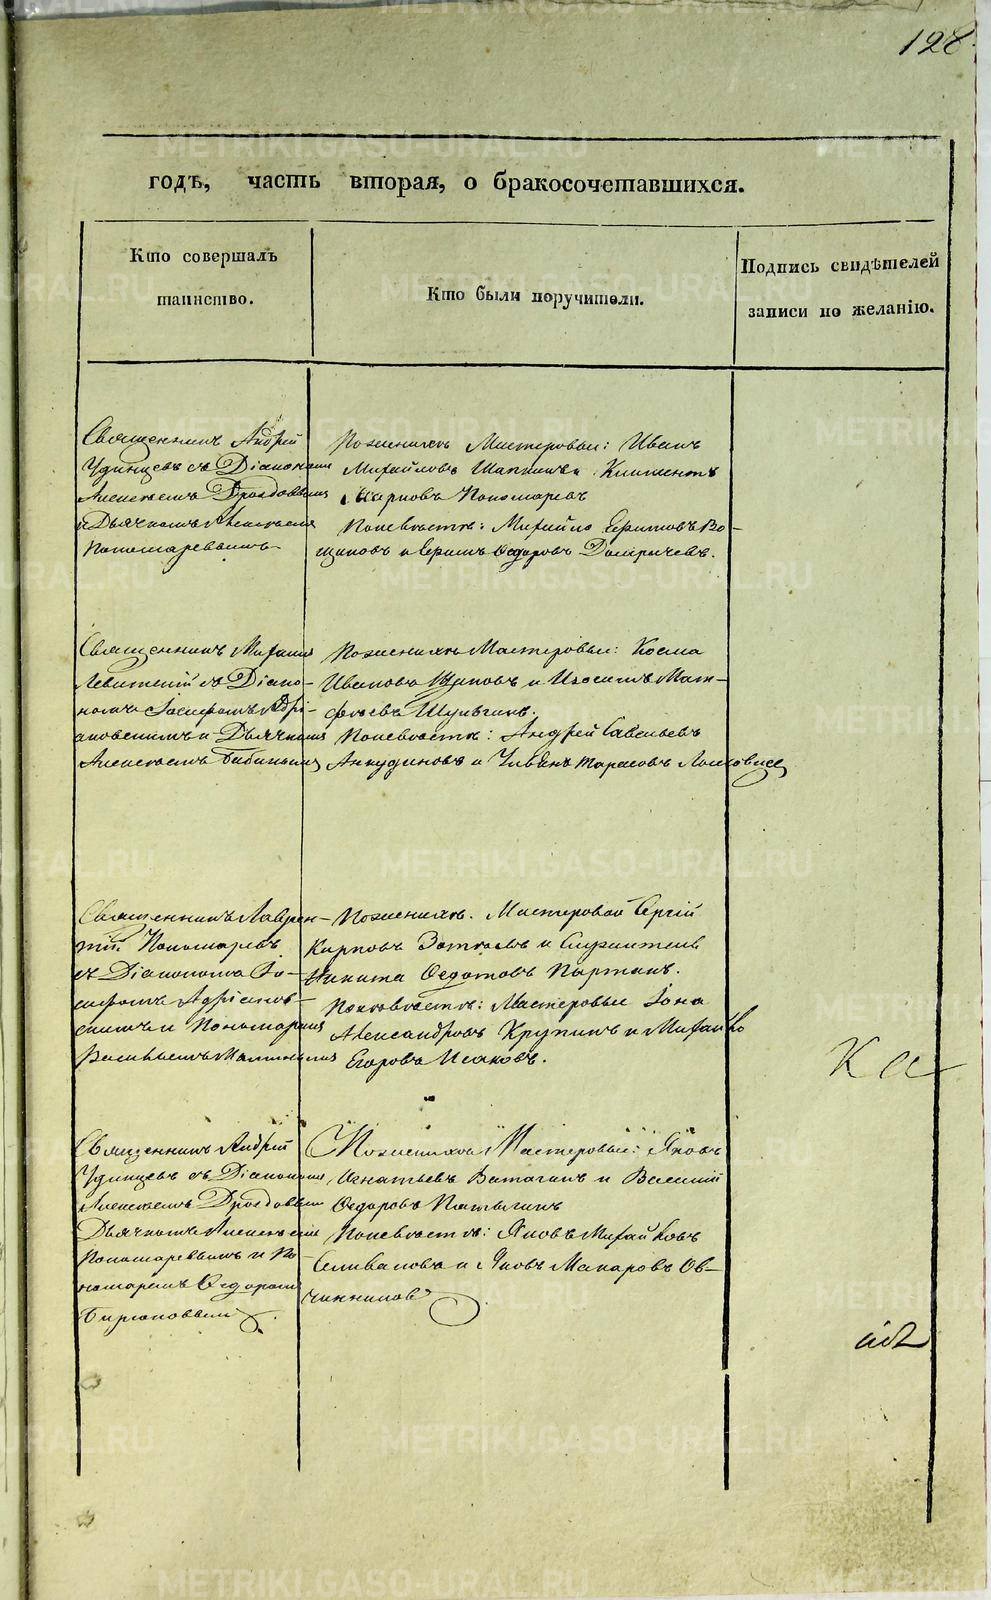 128.
годѣ, часть вторая, о бракосочетавшихся.
Кто совершалъ
таинство.
Кто были поручители.
Подпись свидѣтелей
записи по желанію.
Священникъ Андрей
Удинцевъ съ Діакономъ
Алексѣемъ Дроздовымъ
и Дьячкомъ Алексѣемъ
Пономаревымъ
По женихѣ Мастеровые: Иванъ
Михайловъ и Климентъ
Карповъ Пономаревъ
По невѣстѣ: Михайло Ефимовъ Во-
щиковъ и Ефимъ Ѳедоровъ
Священникъ Михаилъ
Левитскій съ Діако-
номъ Іосифомъ Адрі-
ановскимъ и Дьячкомъ
Алексѣемъ Бабинымъ
По женихѣ Мастеровые: Косма
Ивановъ и Изосимъ Мат-
фѣевъ Шулъгинъ.
По невѣстѣ: Андрей Савельевъ
Анкудиновъ и Иванъ Тарасовъ
Священникъ Лаврен-
тій Пономаревъ
съ Діакономъ Іо-
сифомъ Адріанов-
скимъ и Пономаремъ
Васильемъ
По женихѣ. Мастеровой Сергій
Карповъ и Служитель
Никита Ѳедотовъ
По невѣстѣ: Мастеровые Іона
Александровъ Крупинъ и Михайло
Егоровъ Исаковъ.
Ка
Священникъ Андрей
Удинцевъ съ Діакономъ
Алексѣемъ Дроздовымъ
Дьячкомъ Алексѣемъ
Пономаревымъ и По-
номаремъ Ѳедоромъ
Бирюковымъ
По женихѣ Мастеровые: Яковъ
Игнатьевъ Ватагинъ и Василій
Ѳедоровъ
По невѣстѣ: Яковъ Михайловъ
Селивановъ и Яковъ Макаровъ Ов-
чинниковъ
METRIKI.GASO-URAL.RU